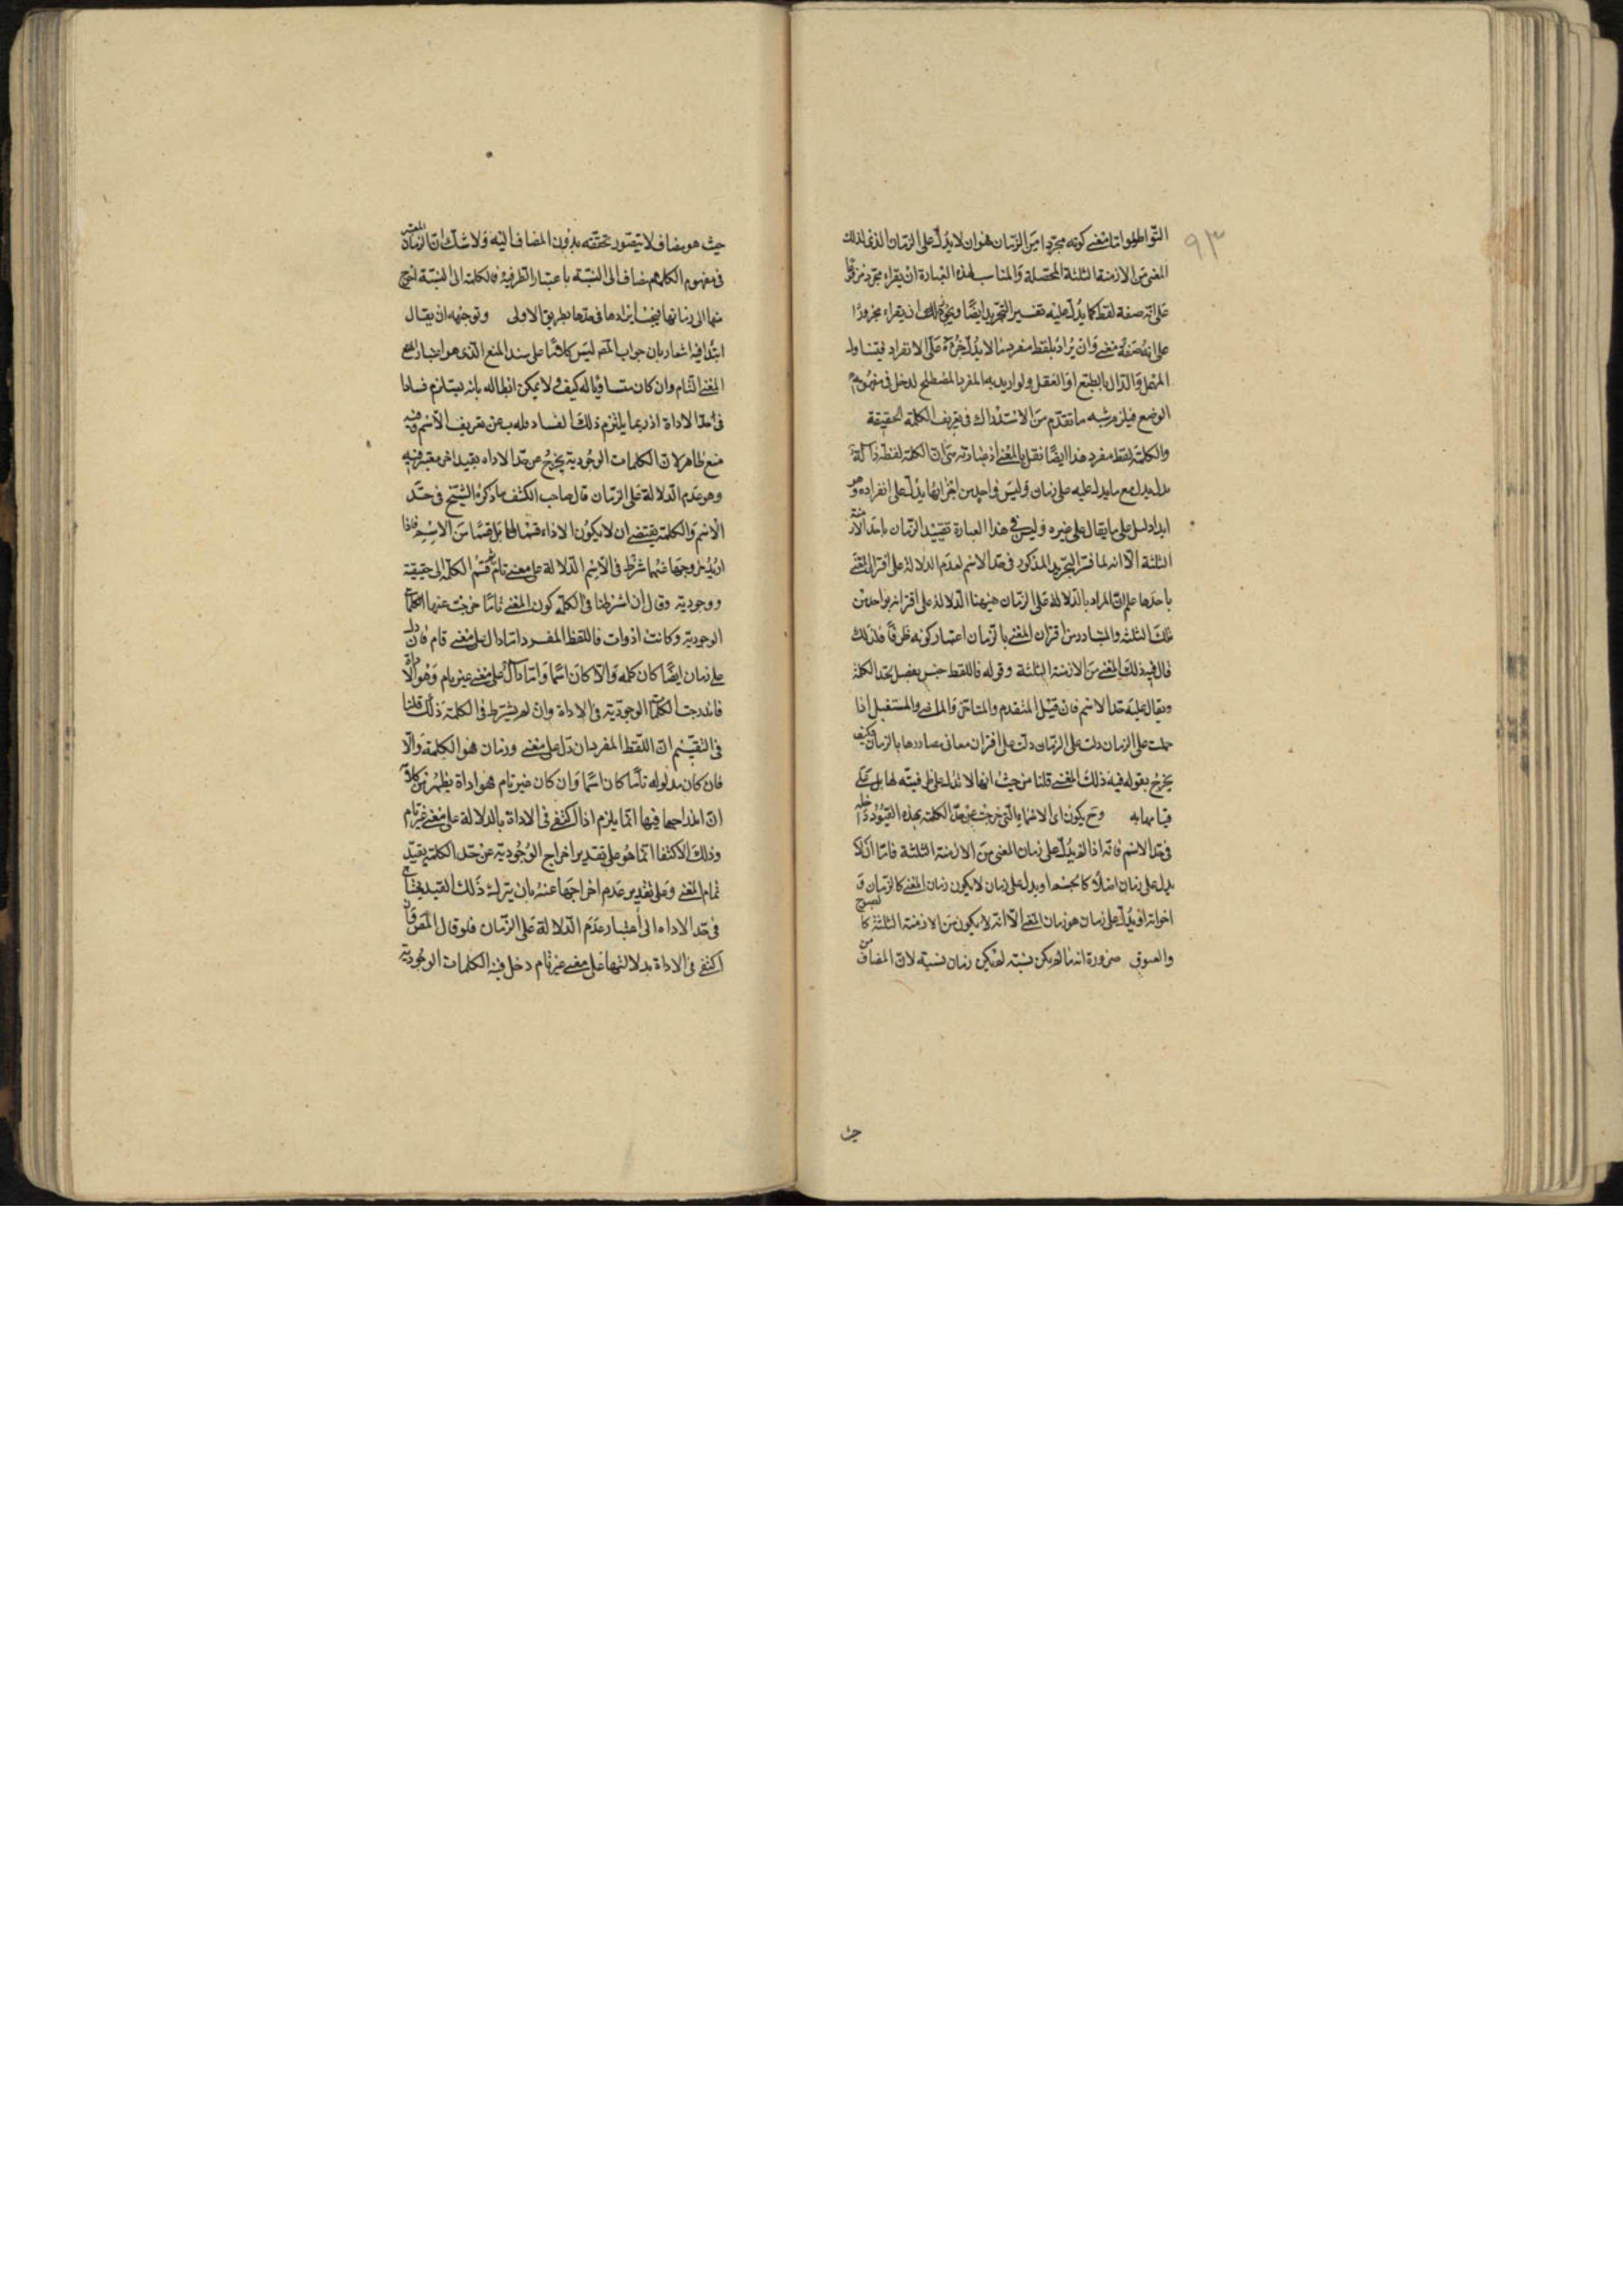 ٩٣
التواطؤ واما معنى كونه مجردا من الزمان هو ان لا يدل على الزمان الذى لذلك
المعنى من الازمنة الثلثة المحصلة والمناسب لهذه العبارة ان يقراء مجرد مرفوعا
على انه صفة لفظ كما يدل عليه تفسير التجريد ايضا ويجوز ان يقراء مجرورا
على انه صفة معنى وان يراد بلفظ مفرد ما لا يدل جزؤه على الانفراد فيتناول
المهمل والدال بالطبع او العقل ولو اريد به المفرد المصطلح لدخل فى مفهومه
الوضع فيلزم شبه ما تقدم من الاستدراك فى تعريف الكلمة الحقيقة
والكلمة لفظ مفرد هذا ايضا نقل بالمعنى اذ عبارته متى ان الكلمة لفظة دالة
يدل مع ما يدل عليه على زمان وليس واحد من اجزائها يدل على انفراده وهو
ابدا دليل على ما يقال على غيره وليس فى هذا العبارة تقييد الزمان باحد الازمنة
الثلثة الا انه لما فسر التجريد المذكور فى حد الاسم لعدم الدلالة على اقتران المعنى
باحدها علم ان المراد بالدلالة على الزمان ههنا الدلالة على اقترانه بواحد من
تلك الثلثة والمتبادر من اقتران المعنى بالزمان اعتبار كونه ظرفا فلذلك
قال فيه ذلك المعنى من الازمنة الثلثة وقوله فاللفظ جنس يفصل بحد الكلمة
ويقال عليه حد الاسم فان قيل المتقدم والمتاخر والماضى والمستقبل اذا
حملت على الزمان دلت على الزمان دلت على اقتران معانى مصادرها بالزمان فكيف
يخرج بقوله فيه ذلك المعنى قلنا من حيث انها لا تدل على ظرفيته لها بل على
قيامها به وح يكون اى الاسماء التى خرجت عن حد الكلمة بهذه القيود داخلة
فى حد الاسم فانه اذا لم يدل على زمان المعنى من الازمنة الثلثة فاما ان لا
يدل على زمان اصلا كالجسم او يدل على زمان لا يكون زمان المعنى كالزمان و
اخواته او يدل على زمان هو زمان المعنى الا انه لا يكون من الازمنة الثلثة كالصبوح
والغبوق ضرورة انه ما لم يكن نسبة لم يكن زمان نسبة لان المضاف من
حيث
حيث هو مضاف لا يتصور تحققه بدون المضاف اليه ولا شك ان الزمان المعتبر
فى مفهوم الكلمة مضاف الى النسبة باعتبار الظرفية فالكلمة الى النسبة احوج
منها الى زمانها فيجب ايرادها فى حدها بطريق الاولى وتوجيهه ان يقال
ابتدا فيه اشعار بان جواب المص ليس كلاما على سند المنع الذى هو اعتبار
المعنى التام وان كان مساويا له كيف ولا يمكن ابطاله بانه يستلزم فسادا
فى حد الاداة اذ ربما يلتزم ذلك الفساد بل هو بحث عن تعريف الاسم وفيه
منع ظاهر لان الكلمات الوجودية يخرج عن حد الاداه بقيد اخر معتبر فيه
وهو عدم الدلالة على الزمان قال صاحب الكشف ما ذكره الشيخ فى حد
الاسم والكلمة يقتضى ان لا يكون الاداء قسما لها بل قسما من الاسم فاذا
اريد خروجها عنها شرط فى الاسم الدلالة على معنى تام ثم قسم الكلمة الى حقيقية
ووجودية وقال ان اشترطنا فى الكلمة كون المعنى تاما خرجت عنها الكلمات
الوجودية وكانت ادوات فاللفظ المفرد اما دال على معنى تام فان دل
على زمان ايضا كان كلمه والا كان اسما واما دال على معنى غير تام وهو الاداة
فاندرجت الكلمات الوجودية فى الاداة وان لم يشترط فى الكلمة ذلك قلنا
فى التقسيم ان اللفظ المفرد ان دل على معنى وزمان فهو الكلمة والا
فان كان مدلوله تاما كان اسما وان كان غير تام فهو اداة يظهر من كلامه
ان اندراجها فيها انما يلزم اذا اكتفى فى الاداة بالدلالة على معنى غير تام
وذلك الاكتفا انما هو على تقدير اخراج الوجودية عن حد الكلمة بقيد
تمام المعنى وعلى تقدير عدم اخراجها عنه بان يترك ذلك القيد يحتاج
فى حد الاداه الى اعتبار عدم الدلالة على الزمان فلو قال المص وان
اكتفى فى الاداة بدلالتها على معنى غير تام دخل فيه الكلمات الوجودية